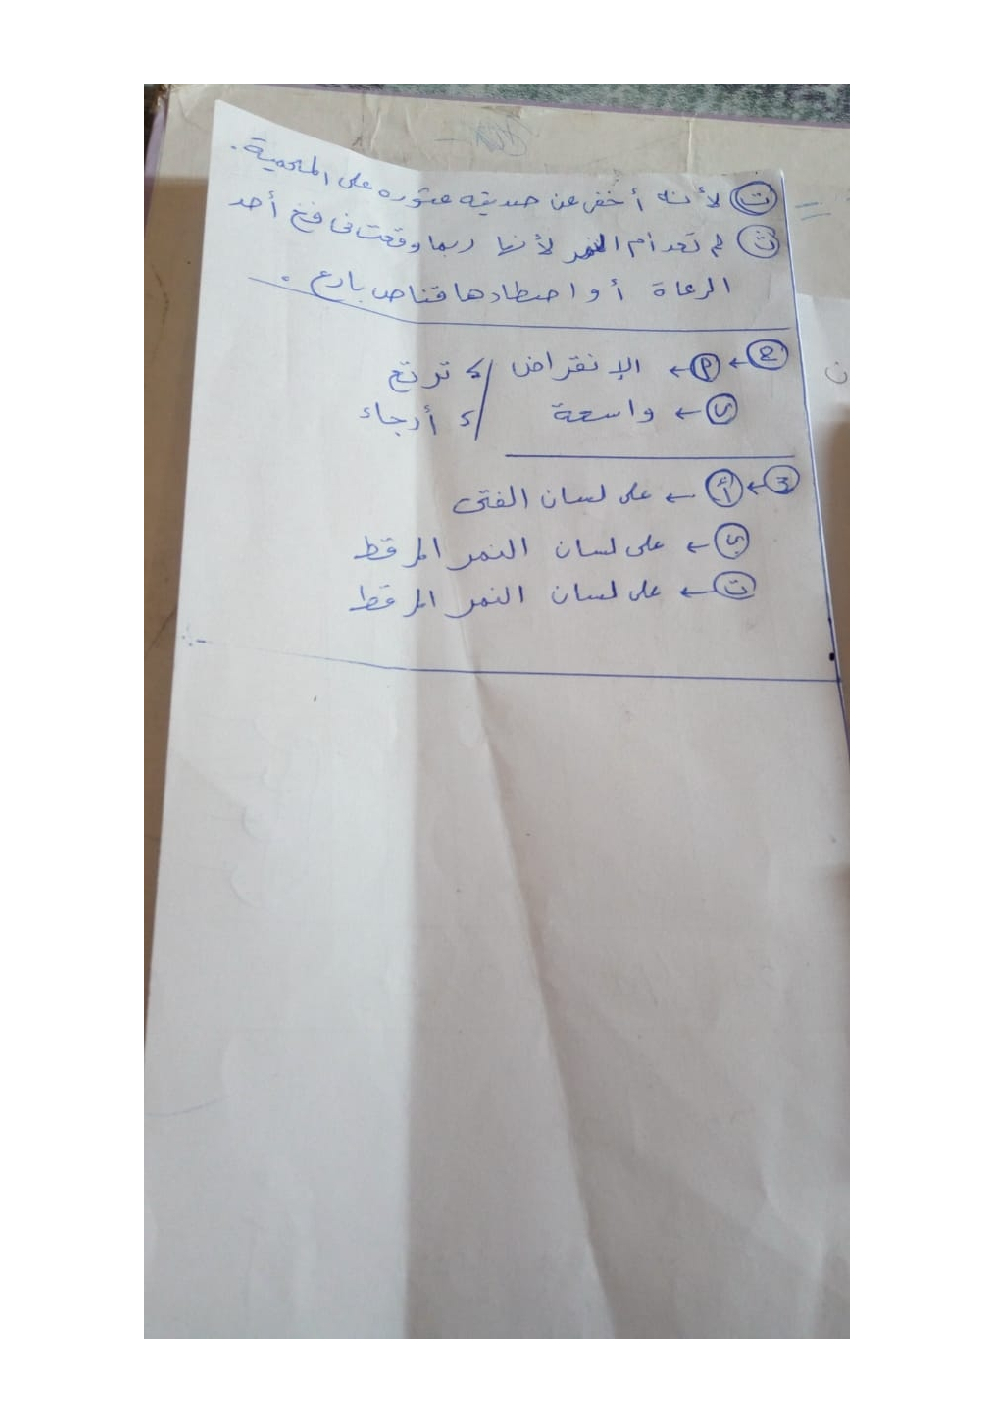 ت لأنه أخفى عن صديقه عثوره على المحمية.
ث لم تعد أم النمر لأنها ربما وقعت فى فخ أحد
الرعاة أو اصطادها قناص بارع.
2 ← أ ← الإنقراض / ترتع
ب ← واسعة / أرجاء
3 ← أ ← على لسان الفتى
ب ← على لسان النمر المرقط
ت ← على لسان النمر المرقط